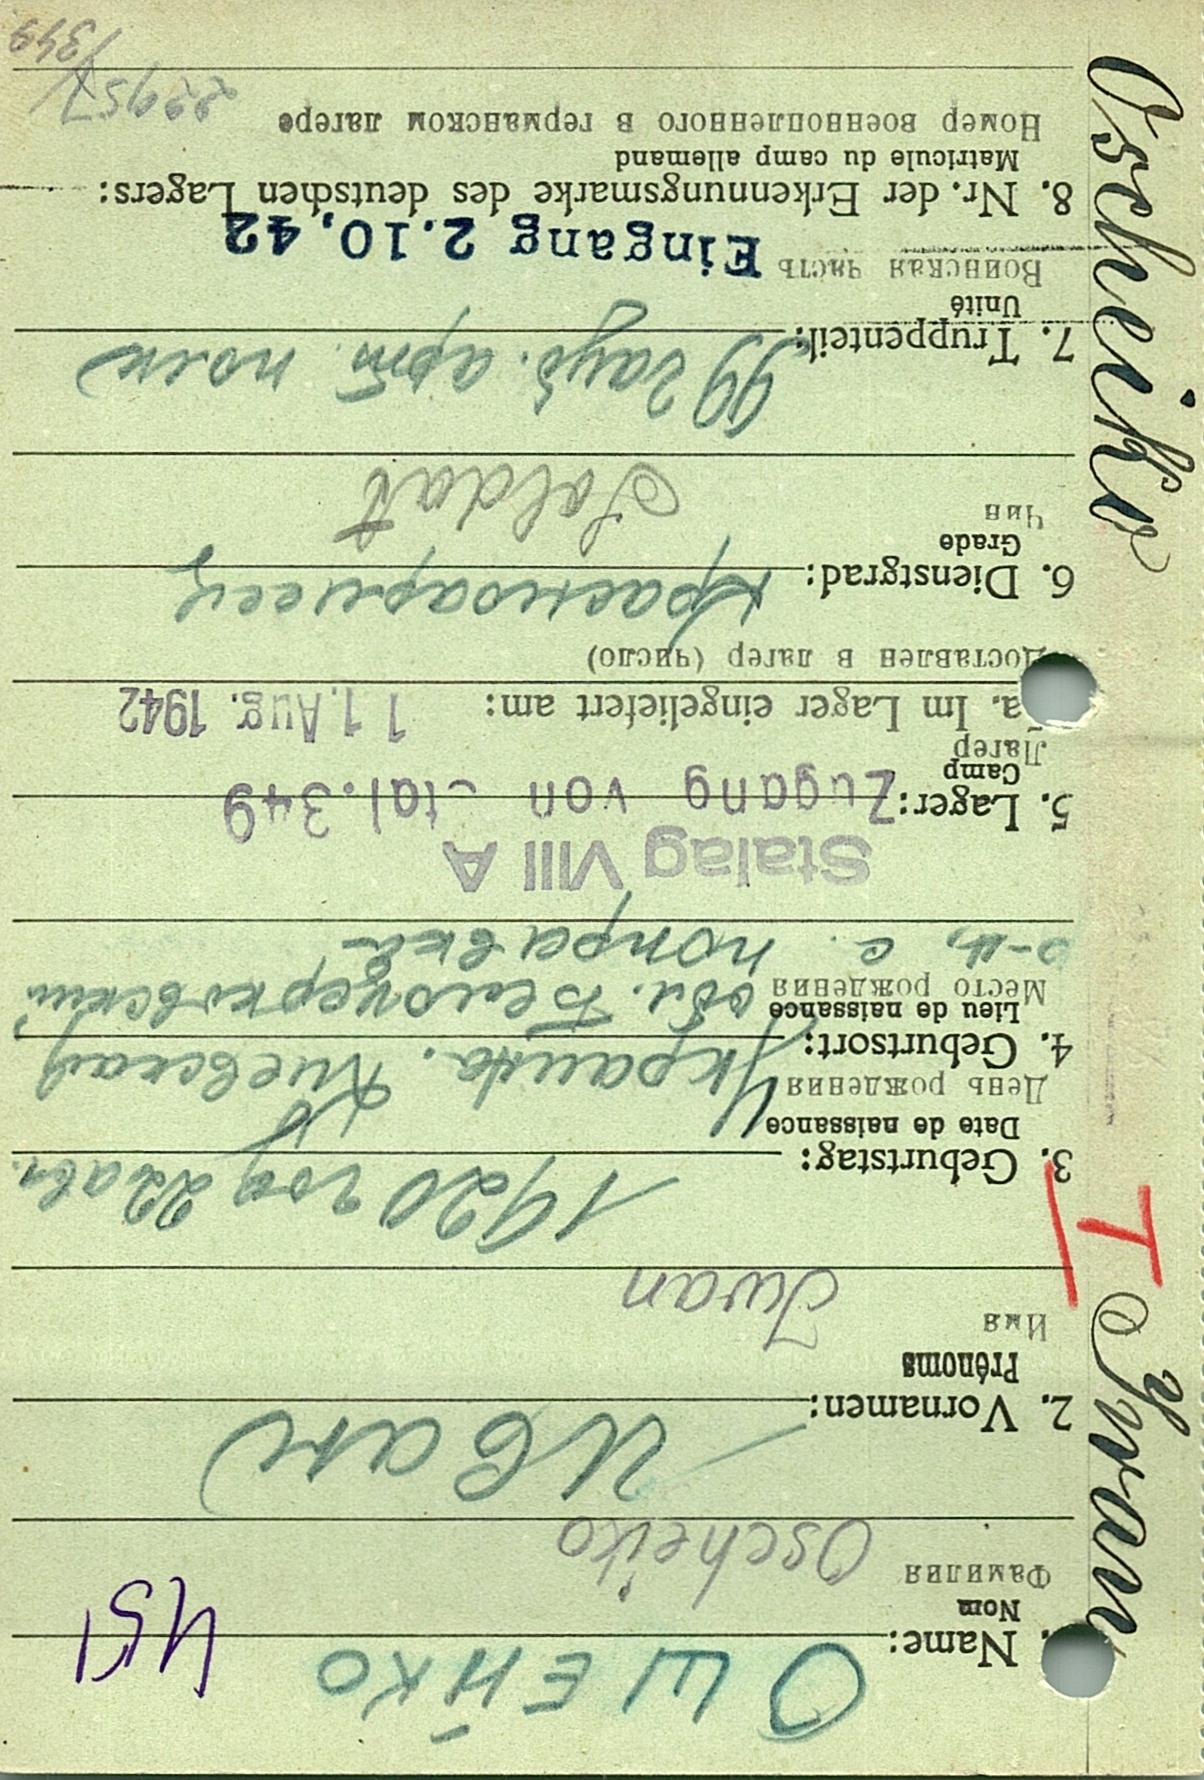 Oscheiko Iwan
T
451
ОШЕЙКО
. Name:
Nom
Фамилия
Oscheiko
Иван
2. Vornamen:
Prénoms
Имя
Iwan
1920 год 22 авг.
3. Geburtstag:
Date de naissance
День рождения
Украина. Киевская
4. Geburtsort:
Lieu de naissance
Место рождения
обл. Белоцерковский
р-н, с. поправка
Stalag VIII A
5. Lager: Zugang von Stal. 349
Camp
Лагер
a. Im Lager eingeliefert am: 11. Aug. 1942
Доставлен в лагер (число)
красноармеец
6. Dienstgrad:
Grade
Чин
Soldat
99 гауб. арт. полк
7. Truppenteil:
Unité
Воинская часть Eingang 2.10.42
8. Nr. der Erkennungsmarke des deutschen Lagers:
Matricule du camp allemand
Номер военнопленного в германском лагере
22957
/349